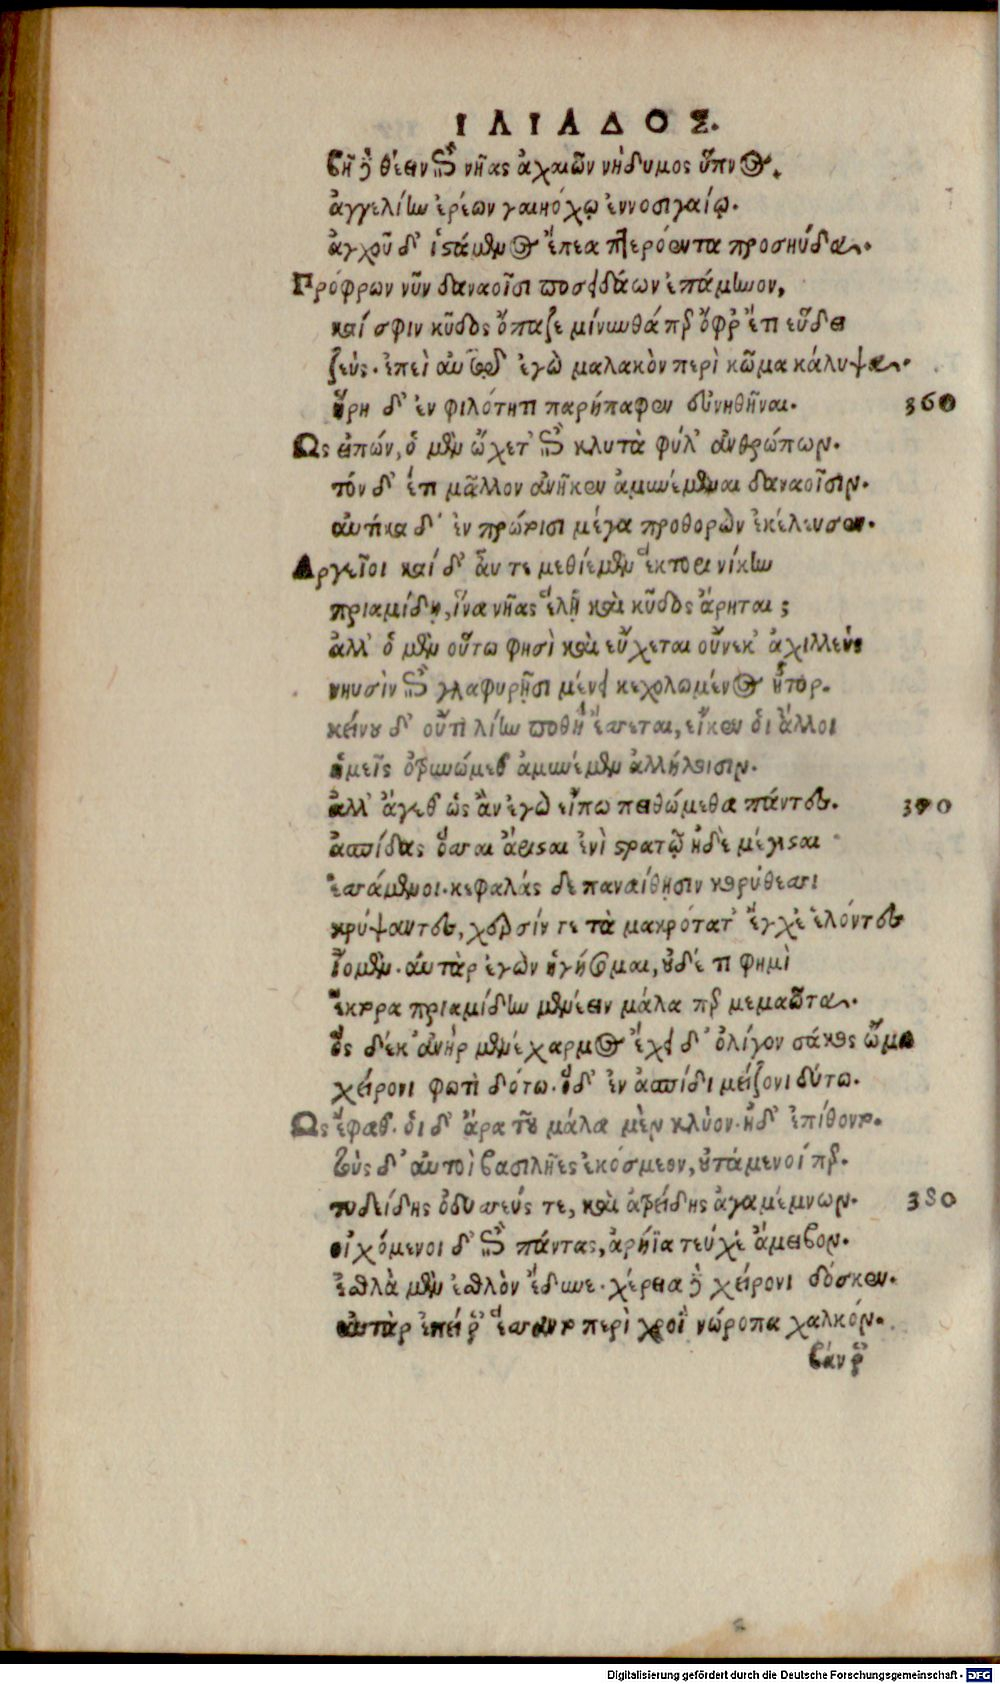 ΙΛΙΑΔΟΣ.
βῆ δὲ θέειν ἐπὶ νῆας ἀχαιῶν νήδυμος ὕπνος.
ἀγγελίην ἐρέων γαιηόχῳ ἐννοσιγαίῳ.
ἀγχοῦ δ' ἱστάμενος ἔπεα πτερόεντα προσηύδα.
Πρόφρων νῦν δαναοῖσι ποσειδάων ἐπάμυνον,
καί σφιν κῦδος ὄπαζε μίνυνθά περ ὄφρ' ἔτι εὕδει
ζεύς. ἐπεὶ αὐτῷ ἐγὼ μαλακὸν περὶ κῶμα κάλυψα.
ἥρη δ' ἐν φιλότητι παρήπαφεν εὐνηθῆναι. 360
Ως εἰπών, ὁ μὲν ᾤχετ' ἐπὶ κλυτὰ φῦλ' ἀνθρώπων.
τόν δ' ἔτι μᾶλλον ἀνῆκεν ἀμυνέμεναι δαναοῖσιν.
αὐτίκα δ' ἐν πρώτοισι μέγα προθορὼν ἐκέλευσεν.
Αργεῖοι καί δ' αὖ τε μεθίεμεν ἕκτορι νίκην
πριαμίδῃ, ἵνα νῆας ἕλῃ καὶ κῦδος ἄρηται;
ἀλλ' ὁ μὲν οὕτω φησὶ καὶ εὔχεται οὕνεκ' ἀχιλλεύς
νηυσὶν ἐπὶ γλαφυρῇσι μένει κεχολωμένος ἦτορ.
κείνου δ' οὔτι λίην ποθὴ ἔσσεται, εἴκεν οἱ ἄλλοι
ἡμεῖς ὀτρυνώμεθ' ἀμυνέμεν ἀλλήλοισιν.
ἀλλ' ἄγεθ' ὡς ἂν ἐγὼ εἴπω πειθώμεθα πάντες. 370
ἀσπίδας ὅσσαι ἄρισται ἐνὶ στρατῷ ἠδὲ μέγισται
ἑσσάμενοι. κεφαλάς δε παναίθῃσιν κορύθεσσι
κρύψαντες, χερσίν τε τὰ μακρότατ' ἔγχε' ἑλόντες
ἴομεν. αὐτὰρ ἐγὼν ἡγήσομαι, οὐδέ τι φημὶ
ἕκτορα πριαμίδην μενέειν μάλα περ μεμαῶτα.
ὃς δέ κ' ἀνὴρ μενέχαρμος ἔχει δ' ὀλίγον σάκος ὤμῳ
χείρονι φωτὶ δότω. ὁ δ' ἐν ἀσπίδι μείζονι δύτω.
Ως ἔφαθ'. οἱ δ' ἄρα τοῦ μάλα μὲν κλύον. ἠδ' ἐπίθοντο.
τοὺς δ' αὐτοὶ βασιλῆες ἐκόσμεον, οὐτάμενοί περ.
τυδείδης ὀδυσσεύς τε, καὶ ἀτρείδης ἀγαμέμνων. 380
οἰχόμενοι δ' ἐπὶ πάντας, ἀρήϊα τεύχε' ἄμειβον.
ἐσθλὰ μὲν ἐσθλὸν ἔδυνε. χέρεια δὲ χείρονι δόσκεν.
αὐτὰρ ἐπεί ῥ' ἕσσαντο περὶ χροῒ νώροπα χαλκόν.
βάν ῥ'
Digitalisierung gefördert durch die Deutsche Forschungsgemeinschaft - DFG